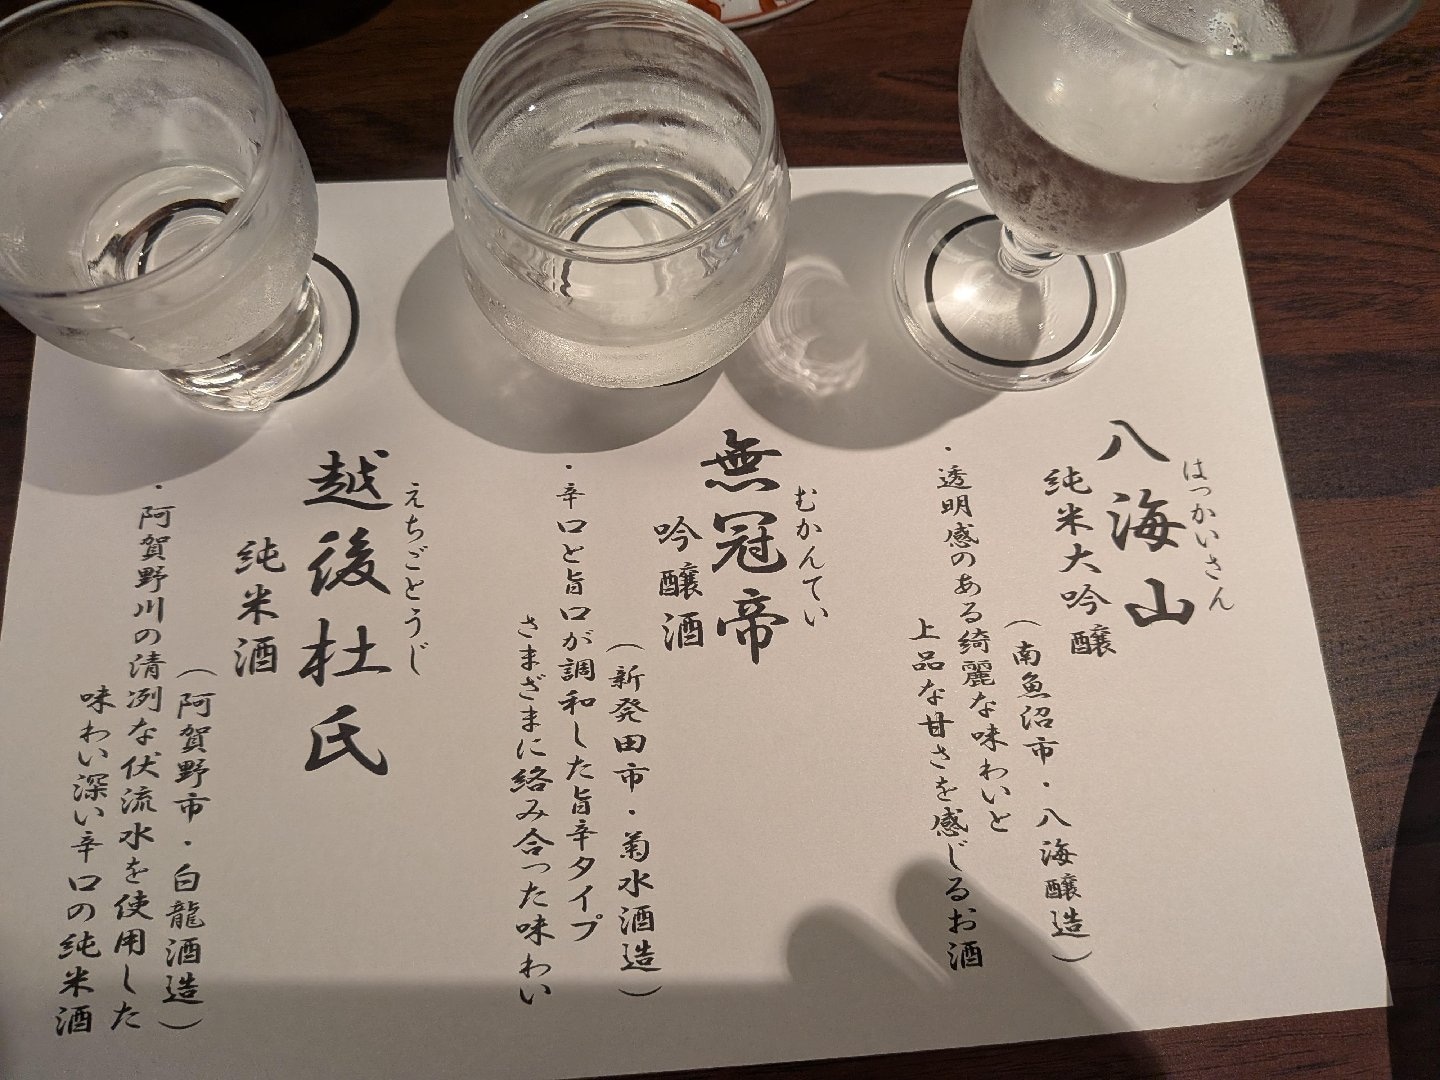 はっかいさん
八海山
純米大吟醸
（南魚沼市・八海醸造）
・透明感のある綺麗な味わいと
上品な甘さを感じるお酒
むかんてい
無冠帝
吟醸酒
（新発田市・菊水酒造）
・辛口と旨口が調和した旨辛タイプ
さまざまに絡み合った味わい
えちごとうじ
越後杜氏
純米酒
（阿賀野市・白龍酒造）
・阿賀野川の清冽な伏流水を使用した
味わい深い辛口の純米酒